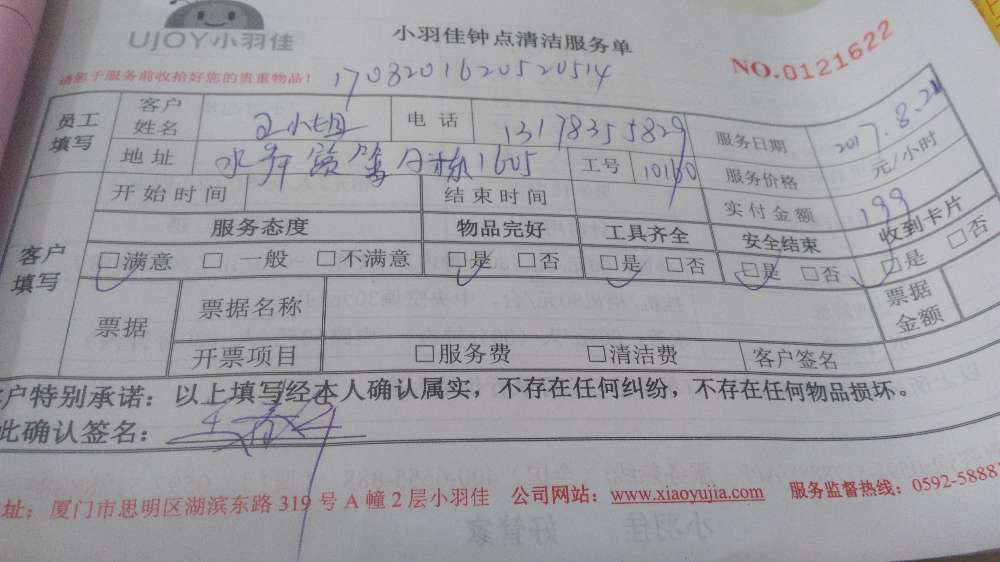 UJOY小羽佳
小羽佳钟点清洁服务单
NO.0121622
请您于服务前收拾好您的贵重物品！
1708201620520514
员工填写 客户姓名 王小姐 电话 13178355829 服务日期 2017.8.21
地址 A栋1605 工号 10160 服务价格 元/小时
开始时间 结束时间 实付金额 199
客户填写 服务态度 物品完好 工具齐全 安全结束 收到卡片
□满意 □一般 □不满意 □是 □否 □是 □否 □是 □否 □是 □否
票据 票据名称 票据金额
开票项目 □服务费 □清洁费 客户签名
客户特别承诺：以上填写经本人确认属实，不存在任何纠纷，不存在任何物品损坏。
此确认签名：
址：厦门市思明区湖滨东路319号A幢2层小羽佳 公司网站：www.xiaoyujia.com 服务监督热线：0592-5888